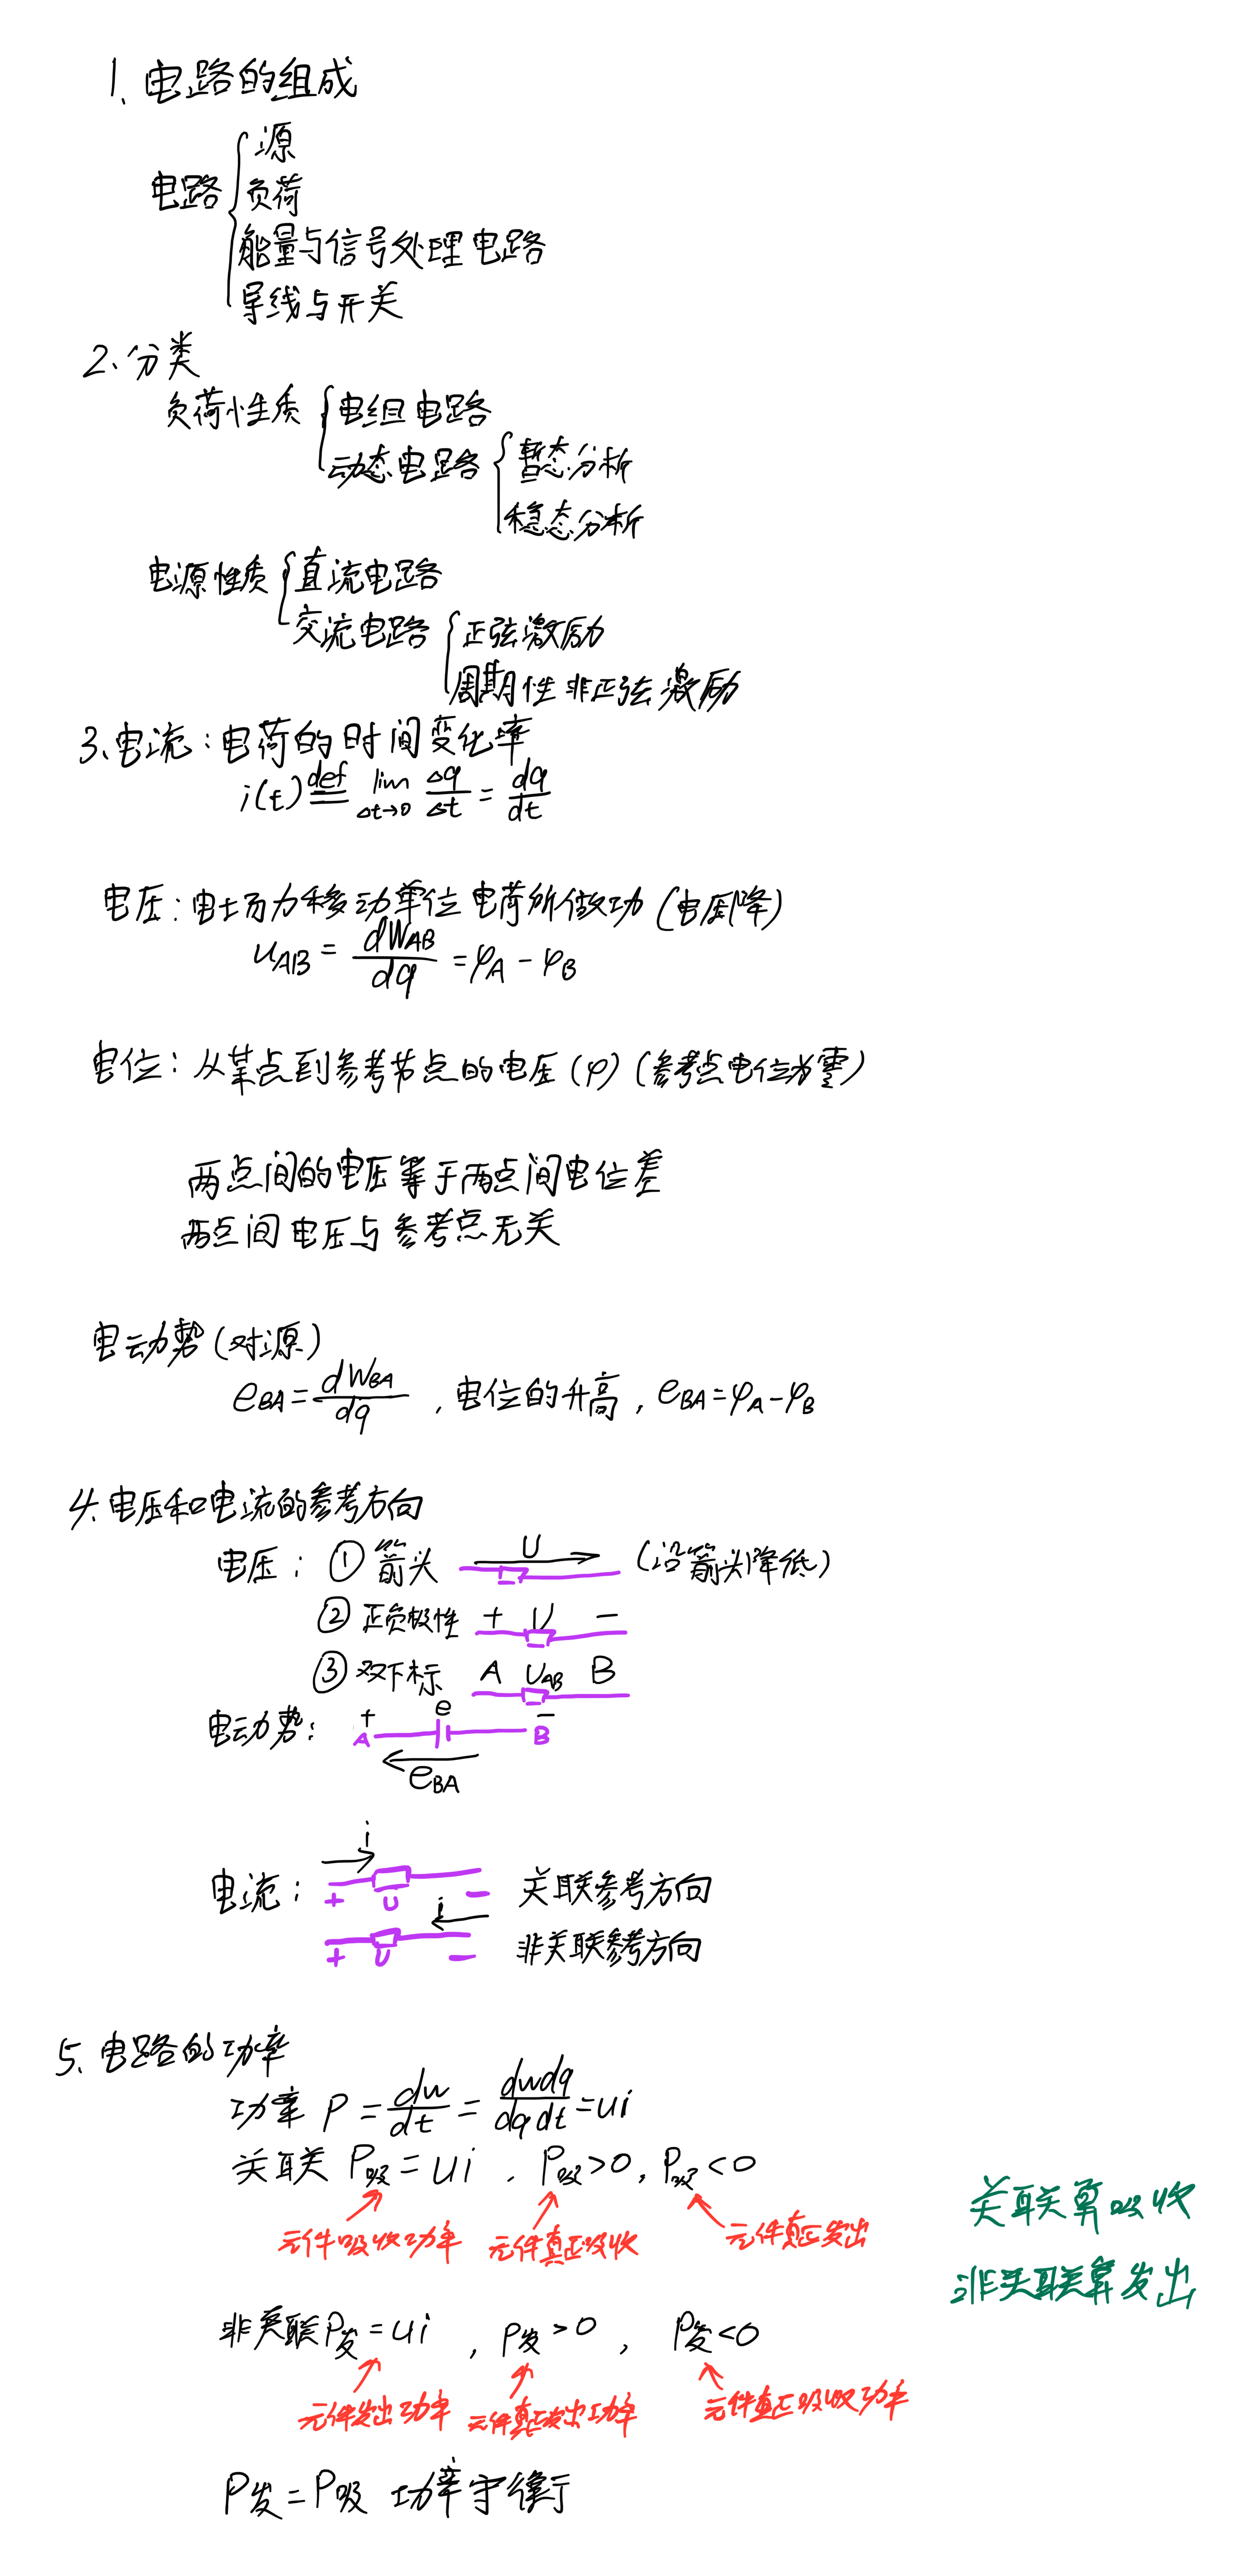 1、电路的组成
源
电路 负荷
能量与信号处理电路
导线与开关
2、分类
负荷性质 电组电路
动态电路 暂态分析
稳态分析
电源性质 直流电路
交流电路 正弦激励
周期性非正弦激励
3、电流：电荷的时间变化率
i(t) def= lim Δt→0 Δq/Δt = dq/dt
电压：电场力移动单位电荷所做功（电压降）
u_AB = dW_AB/dq = φ_A − φ_B
电位：从某点到参考节点的电压（φ）（参考点电位为零）
两点间的电压等于两点间电位差
两点间电压与参考点无关
电动势（对源）
e_BA = dW_BA/dq ，电位的升高，e_BA = φ_A − φ_B
4、电压和电流的参考方向
电压：① 箭头 U （沿箭头降低）
② 正负极性 + U −
③ 双下标 A U_AB B
电动势： + e −
A B
e_BA
i
电流： + U − 关联参考方向
i
+ U − 非关联参考方向
5、电路的功率
功率 P = dw/dt = dwdq/dqdt = ui
关联 P吸 = ui ，P吸>0，P吸<0
元件吸收功率 元件真正吸收 元件真正发出
关联算吸收
非关联算发出
非关联P发 = ui ，P发>0， P发<0
元件发出功率 元件真正发出功率 元件真正吸收功率
P发 = P吸 功率守衡